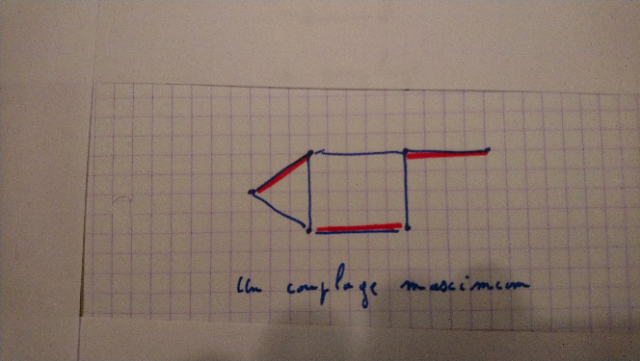 Un couplage maximum